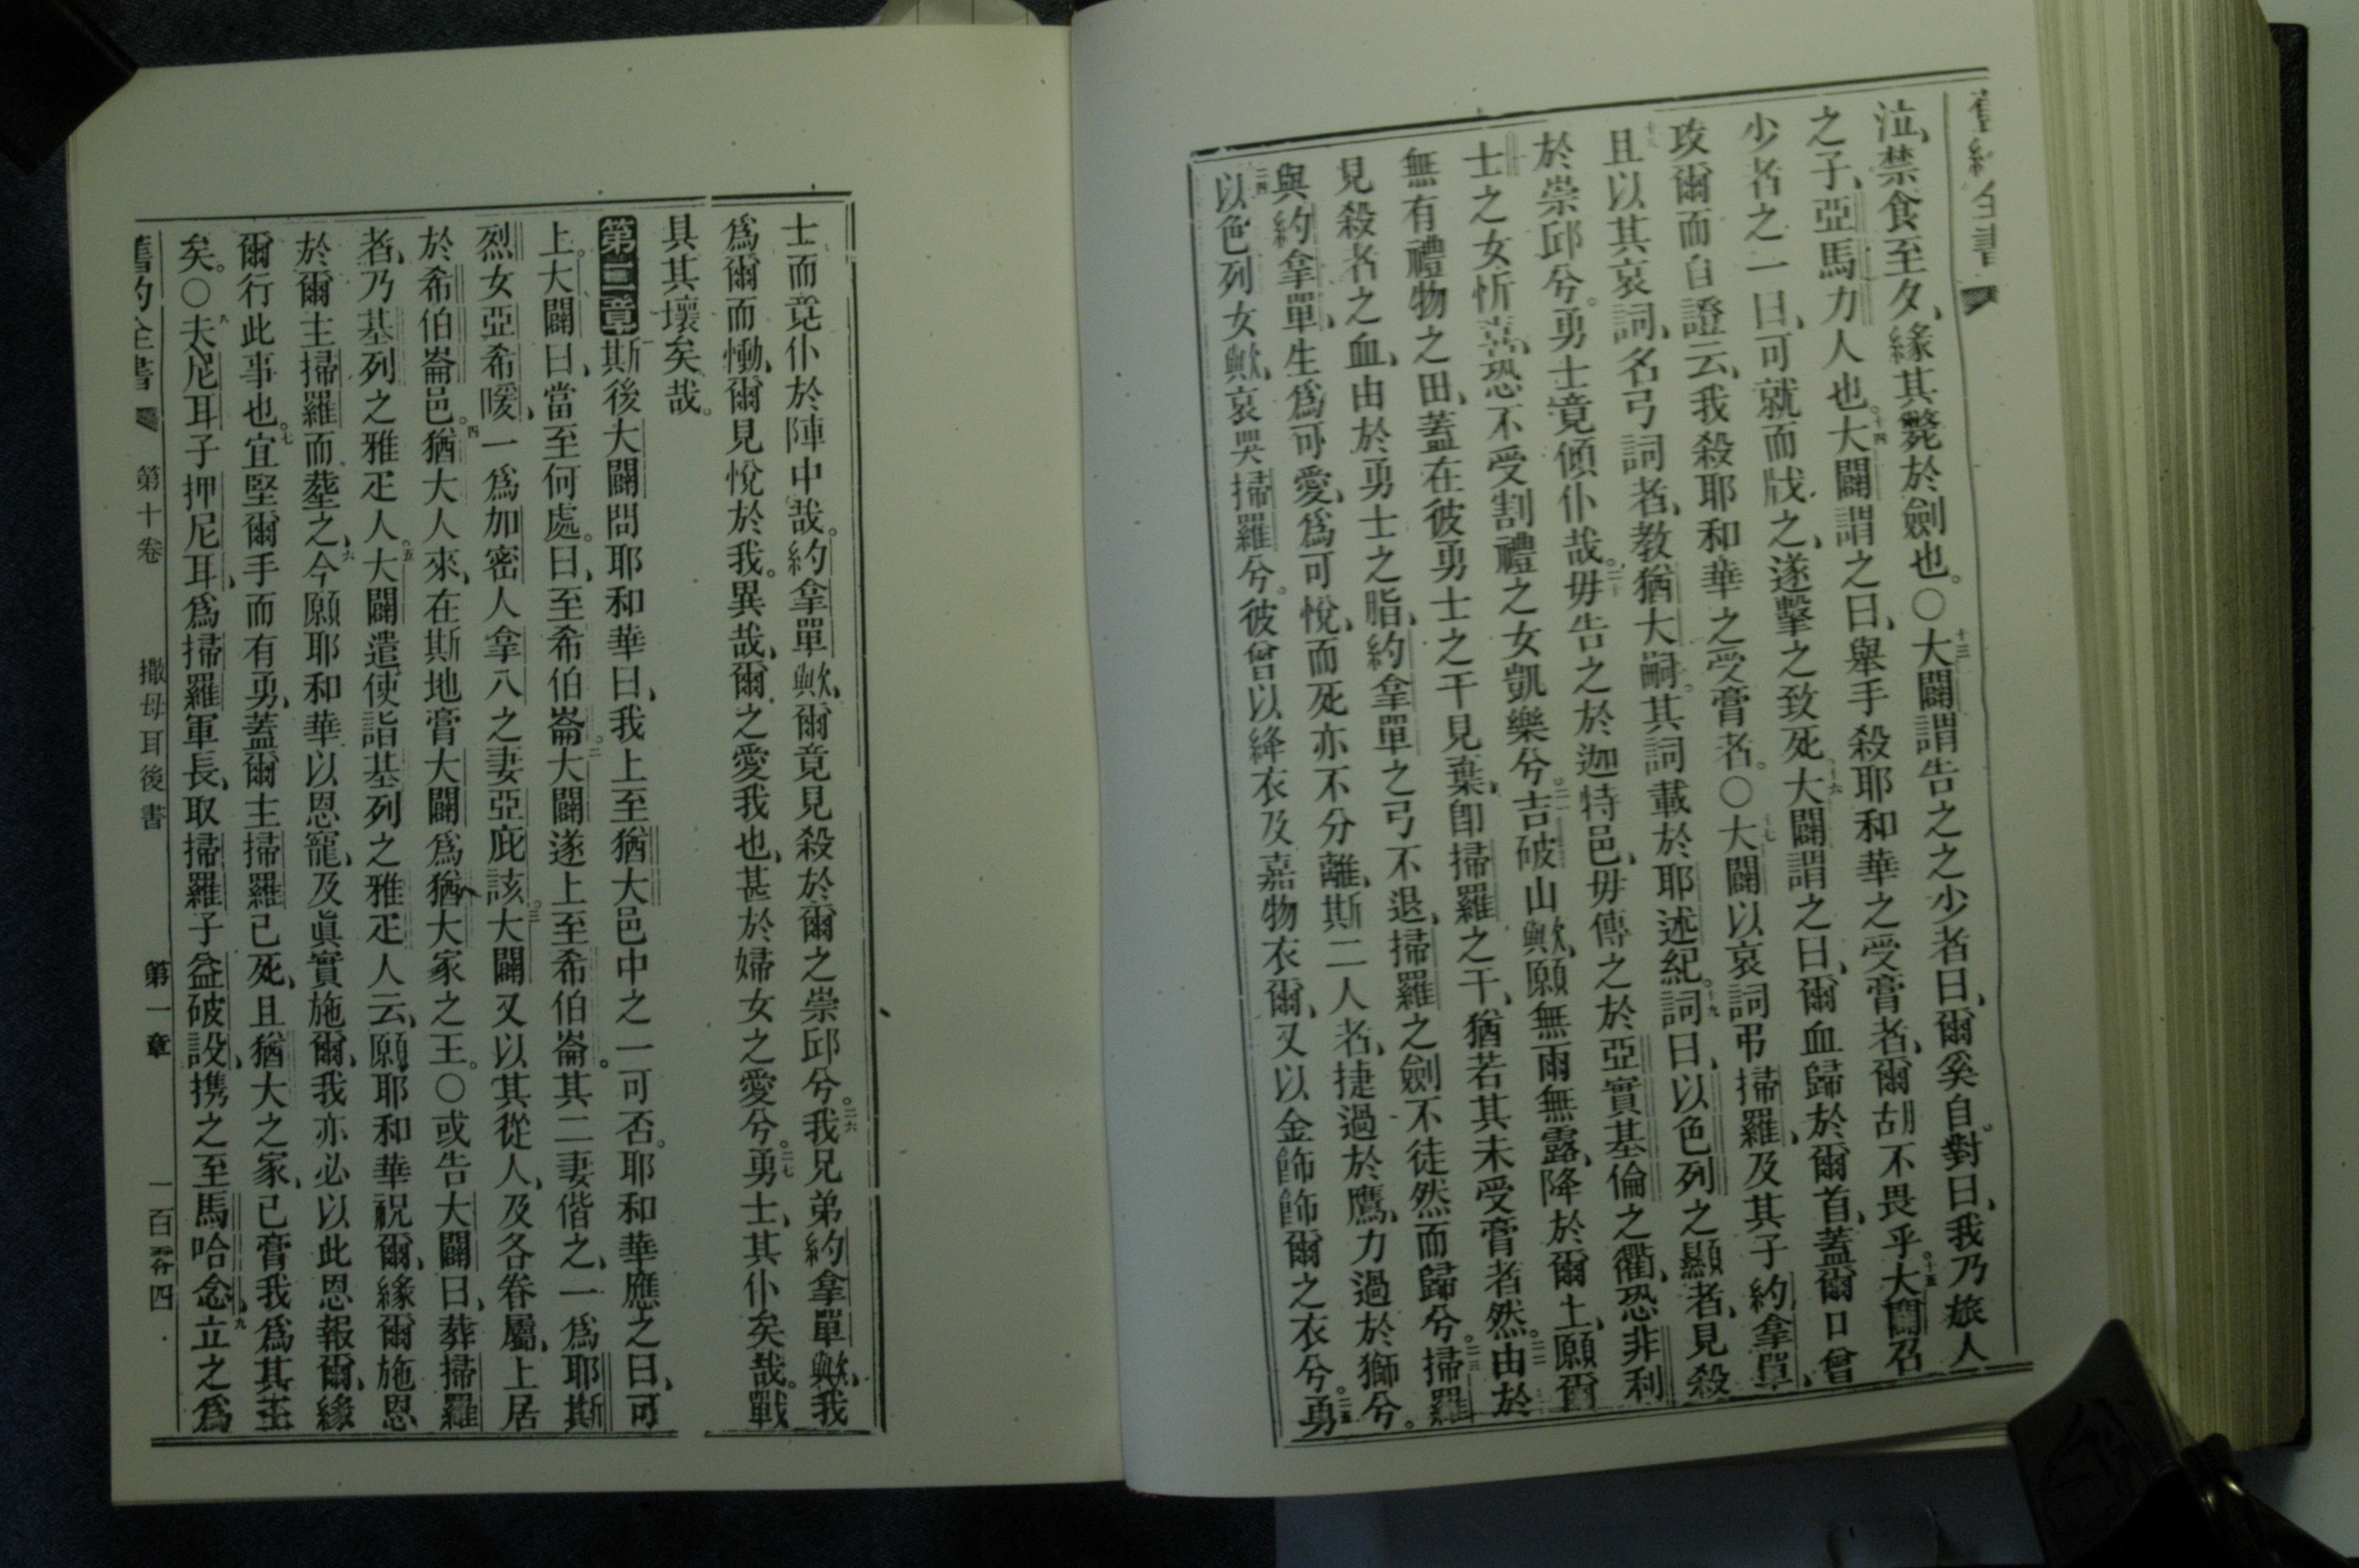 舊約全書
泣、禁食至夕、緣其斃於劍也。○十三大闢謂告之之少者曰、爾奚自。對曰、我乃旅人
之子、亞馬力人也。十四大闢謂之曰、舉手殺耶和華之受膏者、爾胡不畏乎。十五大闢召
少者之一曰、可就而戕之、遂擊之致死。十六大闢謂之曰、爾血歸於爾首、蓋爾口曾
攻爾而自證云、我殺耶和華之受膏者。○十七大闢以哀詞弔掃羅、及其子約拿單、
十八且以其哀詞、名弓詞者、教猶大嗣。其詞載於耶述紀。十九詞曰、以色列之顯者、見殺
於崇邱兮。勇士竟傾仆哉。二十毋告之於迦特邑、毋傳之於亞實基倫之衢、恐非利
士之女忻喜、恐不受割禮之女凱樂兮。二一吉破山歟、願無雨無露、降於爾土、願爾
無有禮物之田、蓋在彼勇士之干見棄、卽掃羅之干、猶若其未受膏者然。二二由於
見殺者之血、由於勇士之脂、約拿單之弓不退、掃羅之劍不徒然而歸兮。二三掃羅
與約拿單、生爲可愛、爲可悅、而死亦不分離、斯二人者、捷過於鷹、力過於獅兮。
二四以色列女歟、哀哭掃羅兮。彼曾以絳衣及嘉物衣爾、又以金飾飾爾之衣兮。二五勇
士而竟仆於陣中哉。約拿單歟、爾竟見殺於爾之崇邱兮。二六我兄弟約拿單歟、我
爲爾而慟、爾見悅於我。異哉、爾之愛我也、甚於婦女之愛兮。二七勇士、其仆矣哉。戰
具其壞矣哉。
第二章 一斯後大闢問耶和華曰、我上至猶大邑中之一可否。耶和華應之曰、可
上。大闢曰、當至何處。曰、至希伯崙。二大闢遂上至希伯崙。其二妻偕之、一爲耶斯
烈女亞希暖、一爲加密人拿八之妻亞庇該。三大闢又以其從人、及各眷屬、上居
於希伯崙邑。四猶大人來、在斯地膏大闢爲猶大家之王。○或告大闢曰、葬掃羅
者、乃基列之雅疋人。五大闢遣使詣基列之雅疋人云、願耶和華祝爾、緣爾施恩
於爾主掃羅而塟之、六今願耶和華以恩寵、及眞實施爾、我亦必以此恩報爾、緣
爾行此事也。七宜堅爾手而有勇、蓋爾主掃羅已死、且猶大之家、已膏我爲其主
矣。○八夫尼耳子押尼耳、爲掃羅軍長、取掃羅子益破設、携之至馬哈念、九立之爲
舊約全書 第十卷 撒母耳後書 第一章 一百零四